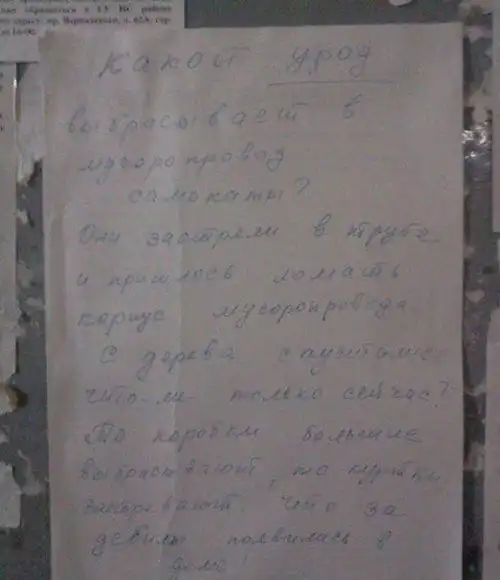 ния обратиться в
скому округу, пр. Варшавская, д. 63А, гор.
Какой урод
выбрасывает в
мусоропровод
самокаты?
Они застряли в трубе
и пришлось ломать
корпус мусоропровода
С дерева спустились
что-ли только сейчас?
То коробки большие
выбрасывают, то куртки
застревают. Что за
дебилы появились в
доме!